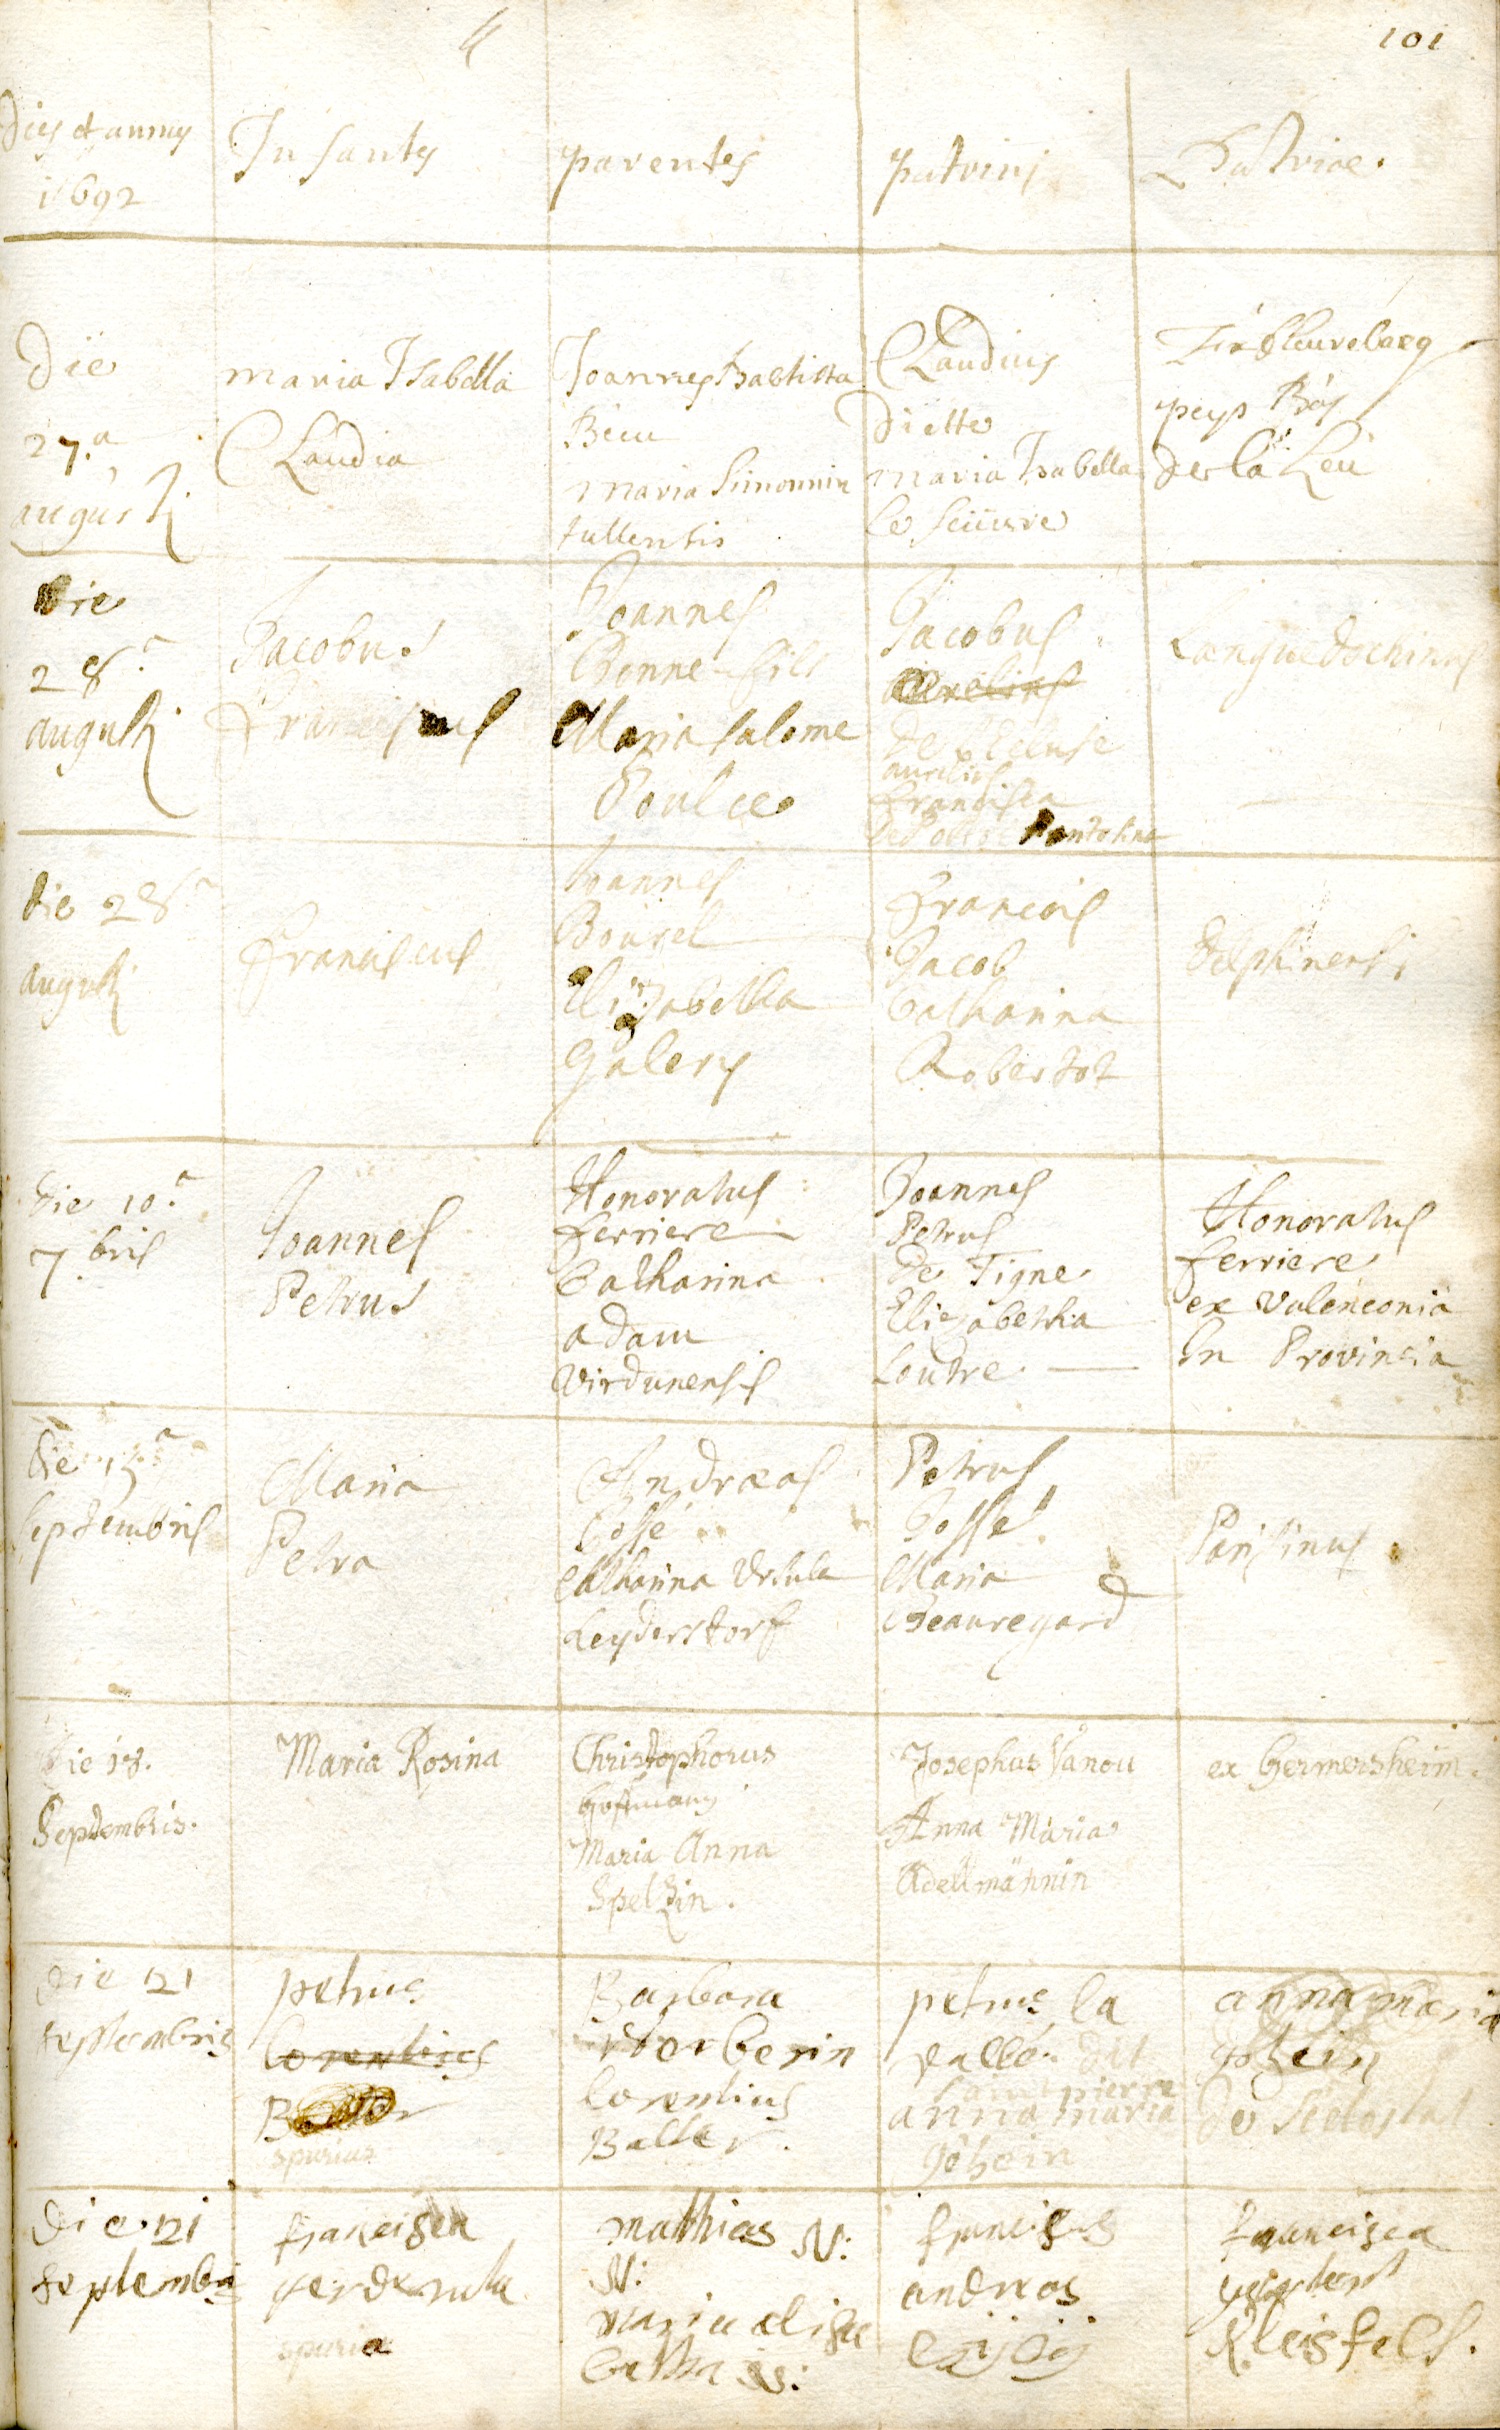 101
Dies et annus
1692
Infantes
parentes
patrini
Patriae.
Die
27.a
augusti
maria Isabella
Claudia
Joannes Babtista
Becu
maria Simonnin
tullensis
Claudius
diette
maria Isabella
le
peys Bas
de la Leu
Die
28.a
augusti
Jacobus
Franciscus
Joannes
Bonne fils
Maria Salome
Poulce
Jacobus
Aurelius
de l'Ecluse
aurelius
Francisca
Languedocninus
die 28a
augusti
Franciscus
Joannes
Bourel
Elizabetha
Galery
Francois
Jacob
Catharina
Robertot
Delphinensis
die 10.a
7.bris
Joannes
Petrus
Honoratus
ferriere
Catharina
adam
Virdunensis
Joannes
Petrus
de Tigne
Elizabetha
Loutre.
Honoratus
ferriere
ex Valenconia
In Provincia
die 15a
septembris
Maria
Petra
Andraeas
Cossé
Catharina Ursula
Leyderstorf
Petrus
Cossé
Maria
Beauregard
Parisinus
Die 18.
Septembris.
Maria Rosina
Christophorus
Hoffmann
Maria Anna
Spelzin.
Josephus Vanou
Anna Maria
Adelmännin
ex Germersheim.
die 21
septembris
petrus
Corentius
spurius
Barbara
Corentius
Balter.
petrus la
vallé dit
saint pierre
anna maria
Götzin
anna maria
de Sletostat
Die 21
septembris
francisca
spuria
mathias N:
N:
maria elisa
betha N:
franciscus
andreas
francisca
Kleisfels.